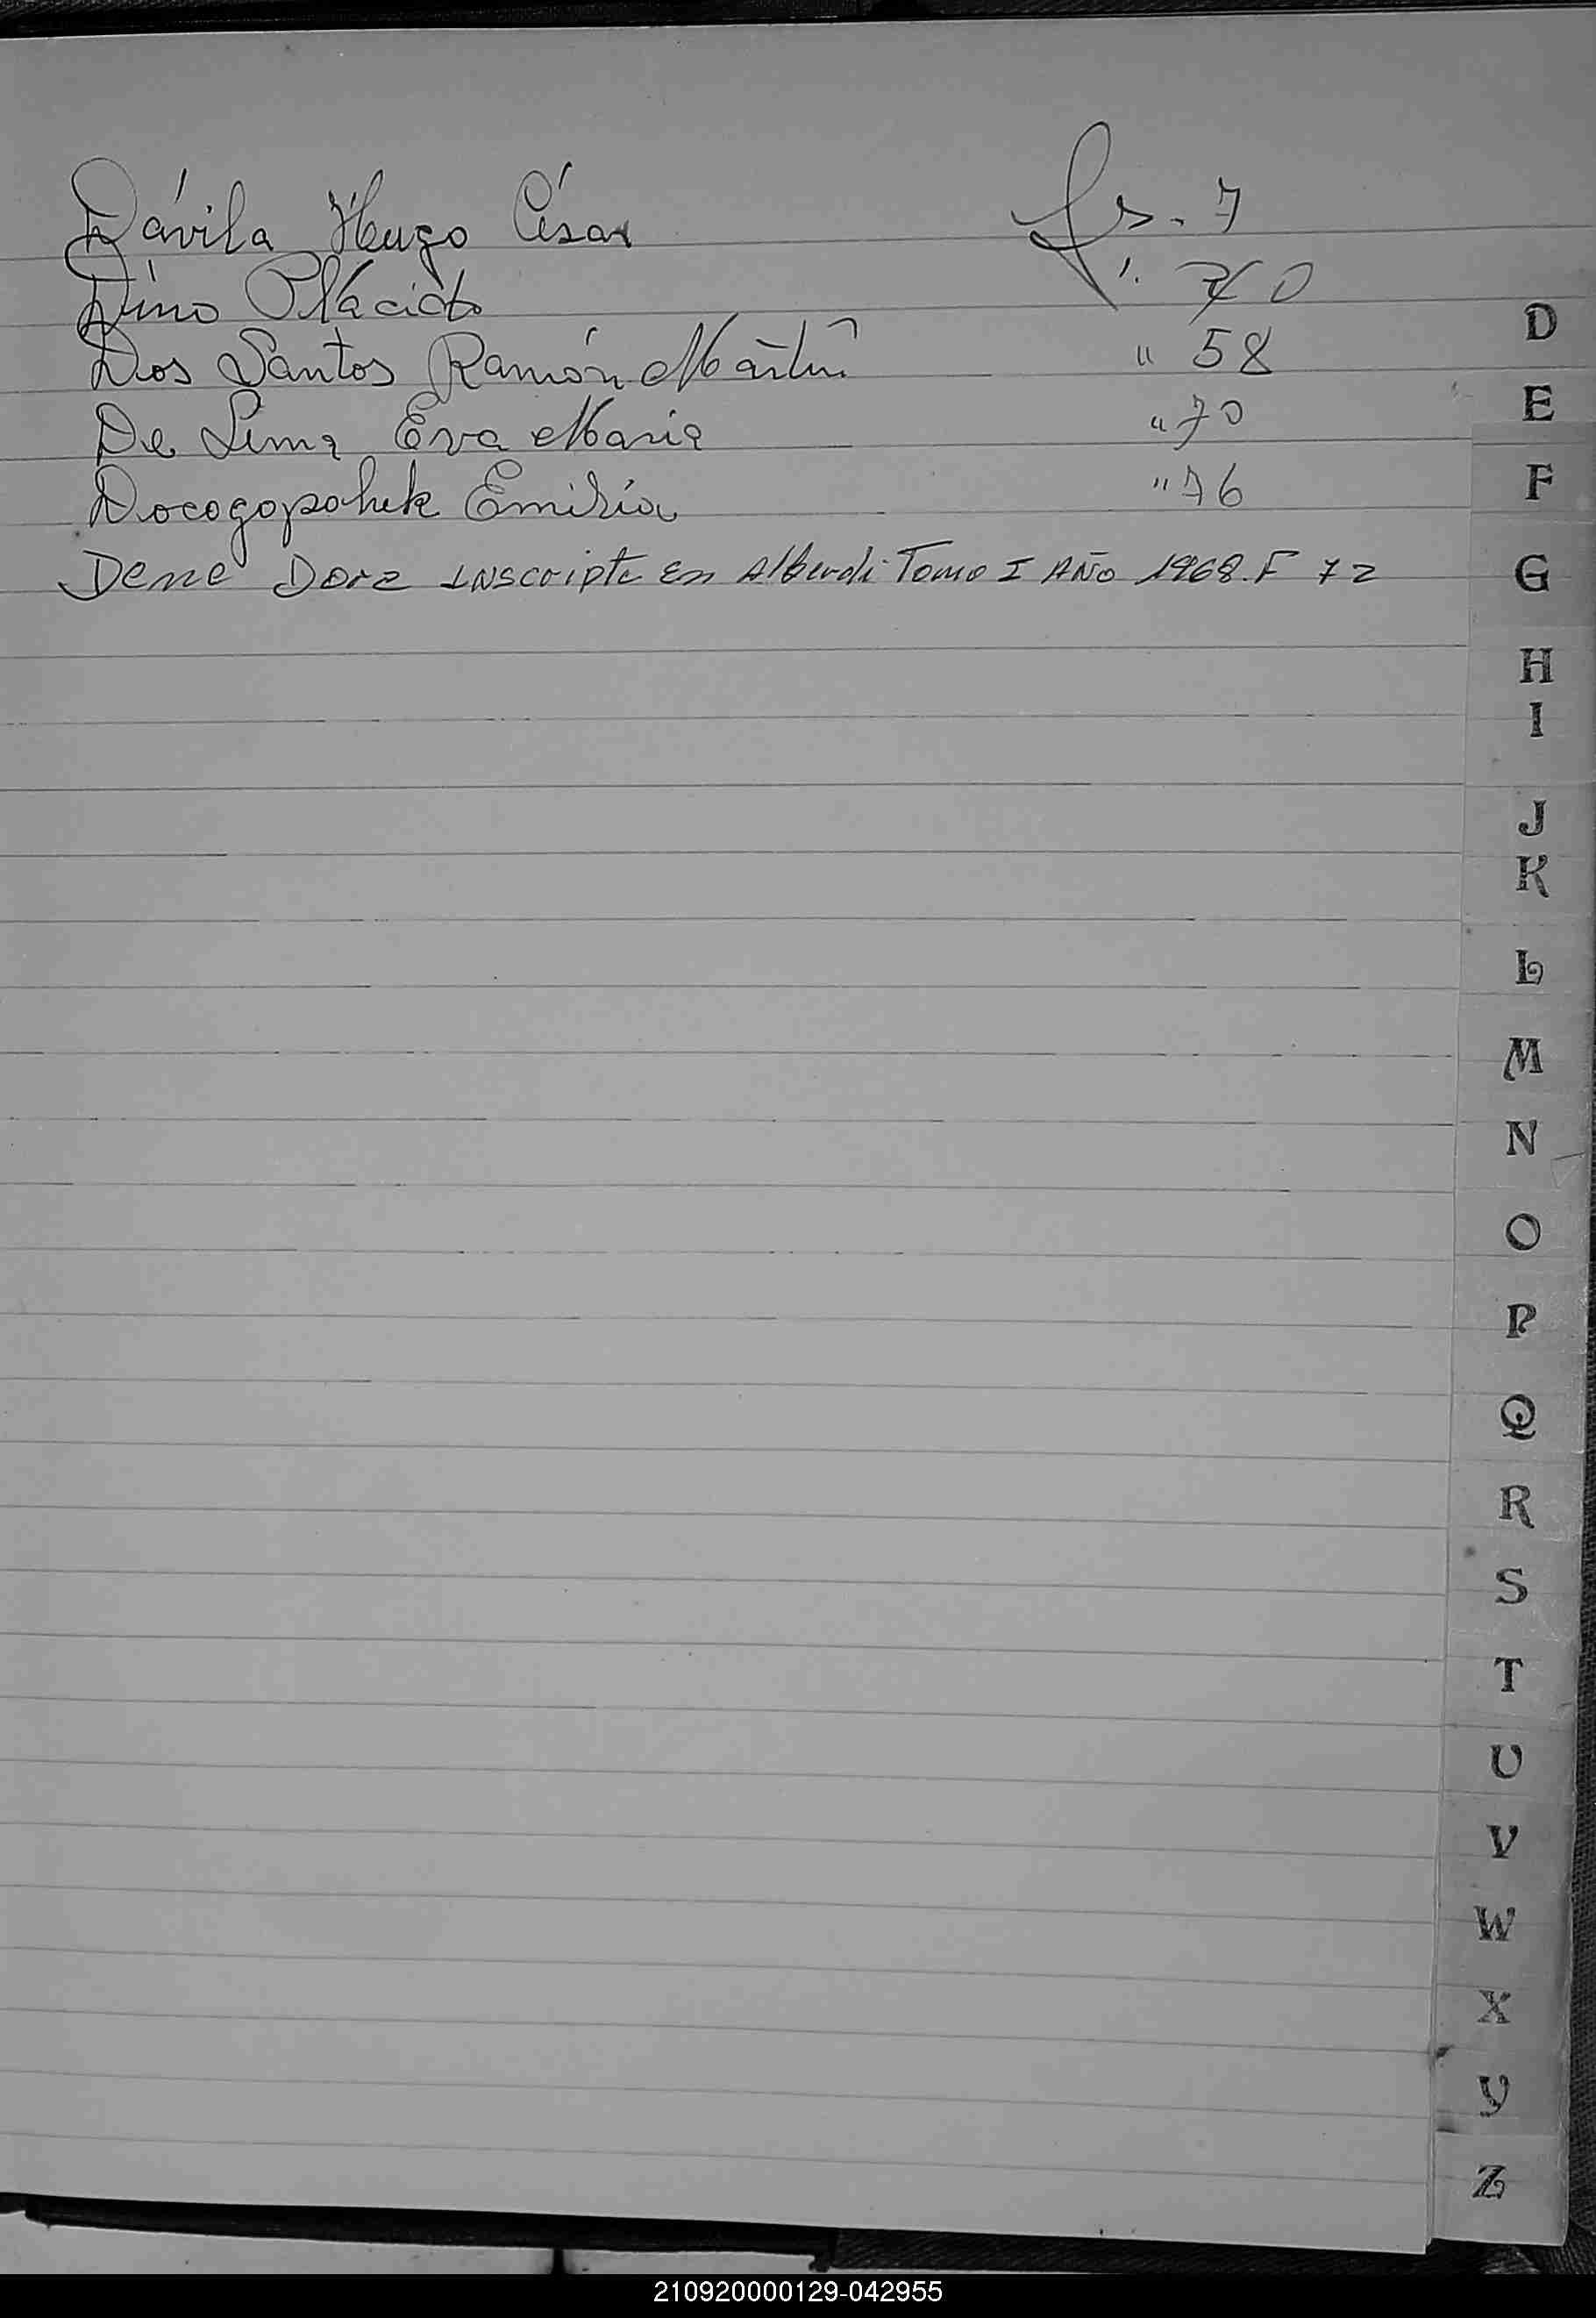 Dávila Hugo César fs. 7
Dino Plácido ". 70
Dos Santos Ramón Martín " 58
De Lima Eva Maria " 70
Docogopohek Emilia " 76
Dene Dora Inscripta En Alberdi Tomo I Año 1968. F 72
D
E
F
G
H
I
J
K
L
M
N
O
P
Q
R
S
T
U
V
W
X
Y
Z
210920000129-042955